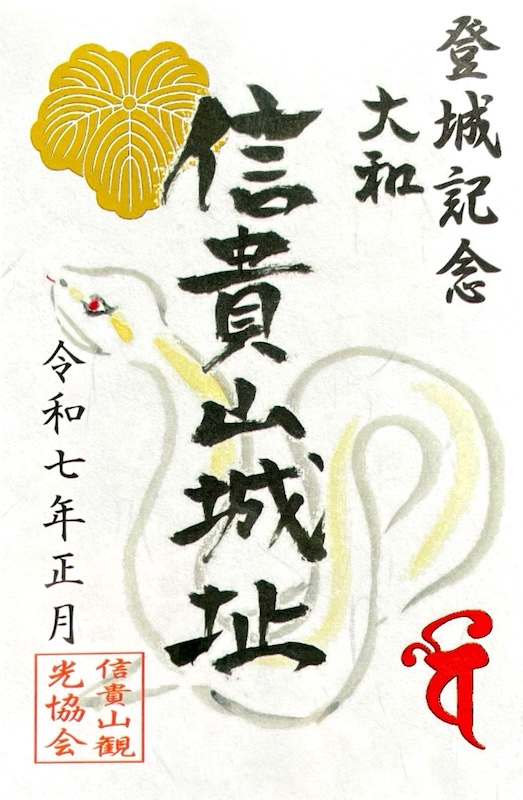 登城記念
大和
信貴山城址
令和七年正月
信貴山観
光協会